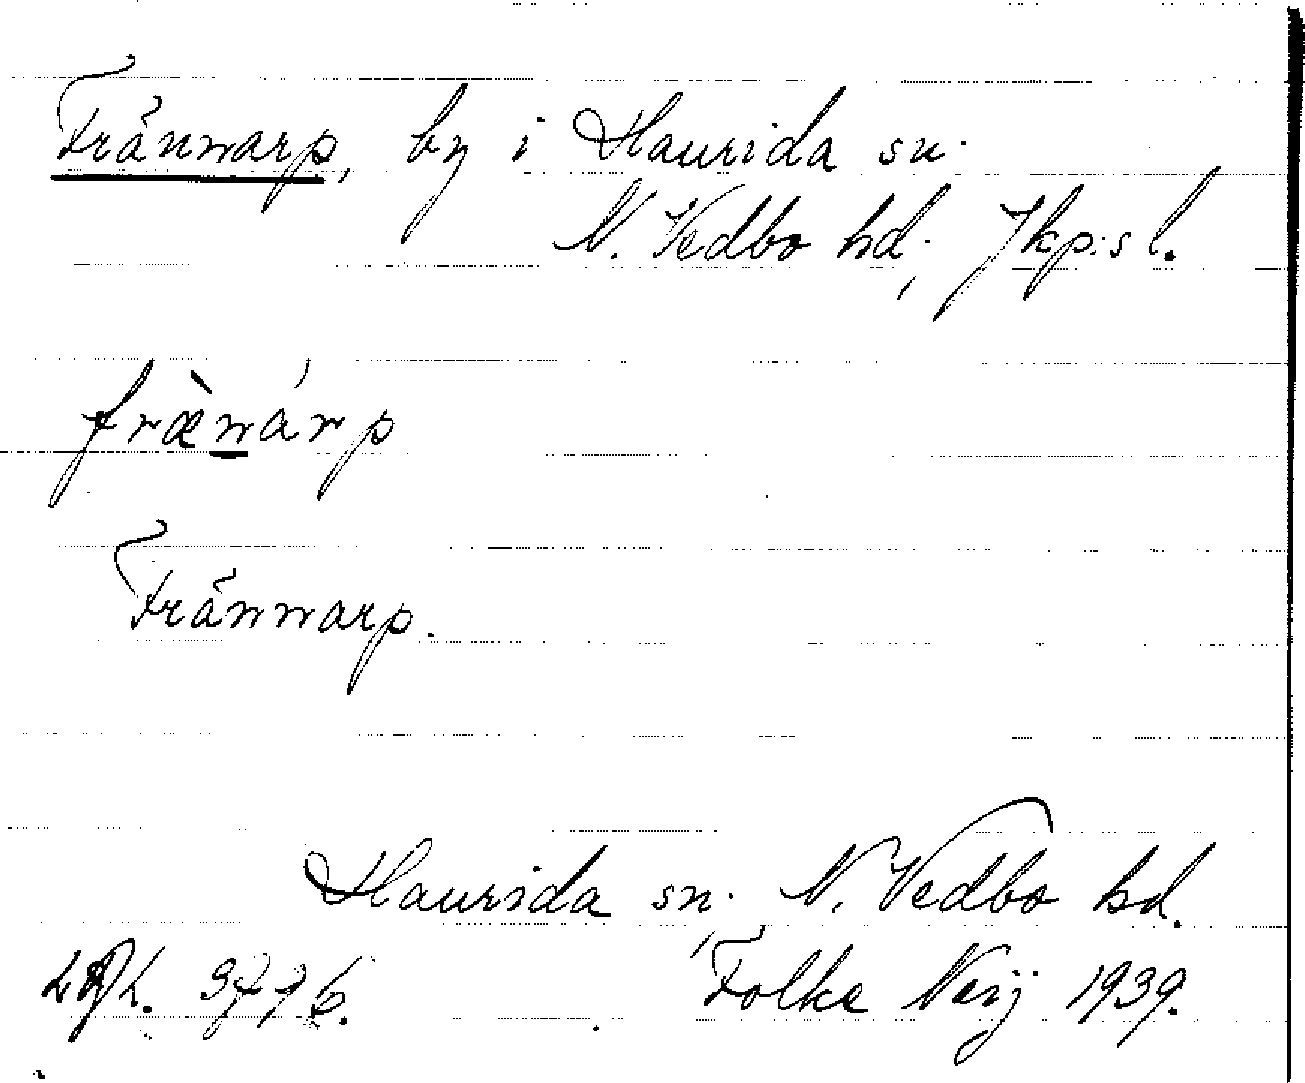 Frännarp, by i Haurida sn.
N. Vedbo hd, Jkp:s l.
frænarp
Frännarp.
Haurida sn. N. Vedbo hd.
Folke Neij 1939.